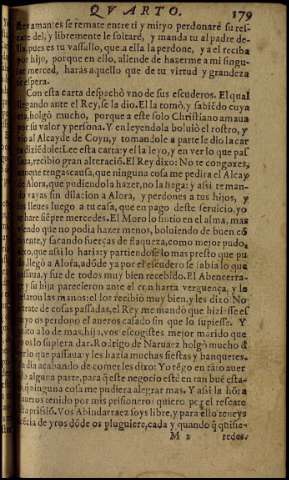 QVARTO. 179
se remate entre ti y mi: yo perdonaré su res-
cate del, y libremente le soltaré, y manda tu al padre de-
lla, pues es tu vassallo, que a ella la perdone, y a el reciba
por hijo, porque en ello, allende de hazerme a mi singu-
lar merced, harás aquello que de tu virtud y grandeza
se espera.
Con esta carta despachò vno de sus escuderos. El qual
llegando ante el Rey, se la dio. El la tomó, y sabiẽdo cuya
era, holgò mucho, porque a este solo Christiano amaua
por su valor y persona. Y en leyendola boluiò el rostro, y
vio al Alcayde de Coyn, y tomandole a parte le dio la car
ta diziẽdole: Lee esta carta: y el la leyo, y en ver lo que pas
saua, recibio gran alteració. El Rey dixo: No te congoxes,
aunque tengas causa, que ninguna cosa me pedira el Alcay
de Alora, que pudiendola hazer, no la haga: y assi te man-
do vayas sin dilacion a Alora, y perdones a tus hijos, y
los lleues luego a tu casa, que en pago deste seruicio, yo
te haré siẽpre mercedes. El Moro lo sintio en el alma, mas
viendo que no podia hazer menos, boluiendo de buen co
tinente, y sacando fuerças de flaqueza, como mejor pudo,
dixo, que assi lo haria: y partiendose lo mas presto que pu
do llegò a Alora, adõde ya por el escudero se sabia lo que
passaua, y fue de todos muy bien recebido. El Abencerra-
ge y su hija parecieron ante el con harta verguença, y le
besaron las manos: el los recibio muy bien, y les dixo: No
se trate de cosas passadas, el Rey me mando que hiziesse
yo os perdono el aueros casado sin que lo supiesse. Y
en lo de mas, hija, vos escogistes mejor marido que
yo os lo supiera dar. Rodrigo de Naruaez holgò mucho
de ver lo que passaua: y les hazia muchas fiestas y banquetes.
Vn dia acabando de comer les dixo: Yo tẽgo en tãto auer
sido alguna parte, para q̃ este negocio estè en tan buẽ esta-
do, que ninguna cosa me pudiera alegrar mas. Y assi la hõra
de aueros tenido por mis prisioneros quiero por el rescate
de la prisiõ. Vos Abindarraez soys libre, y para ello teneys
licẽcia de yros dõde os pluguiere, cada y quando q̃ quisie-
M 2 redes.